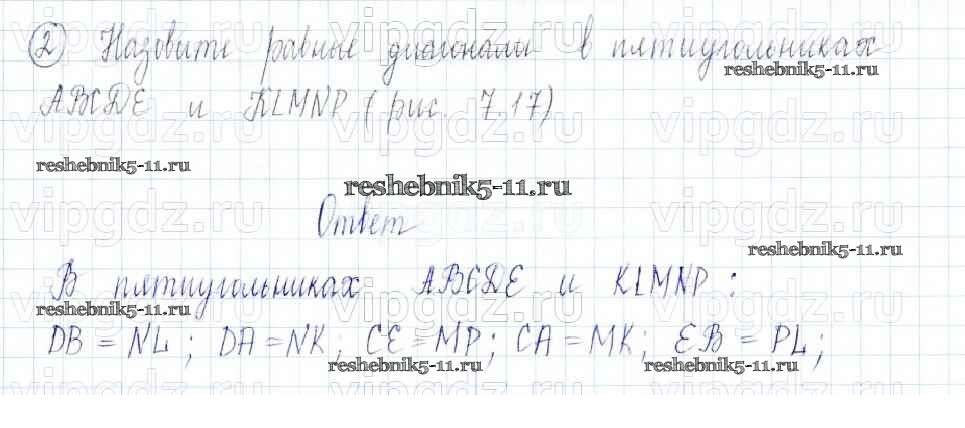 ② Назовите равные диагонали в пятиугольниках
reshebnik5-11.ru
ABCDE и KLMNP (рис. 7.17)
reshebnik5-11.ru
reshebnik5-11.ru
Ответ
reshebnik5-11.ru
В пятиугольниках ABCDE и KLMNP:
reshebnik5-11.ru
DB = NL; DA = NK; CE = MP; CA = MK; EB = PL;
reshebnik5-11.ru
reshebnik5-11.ru
vipgdz.ru vipgdz.ru vipgdz.ru vipgdz.ru